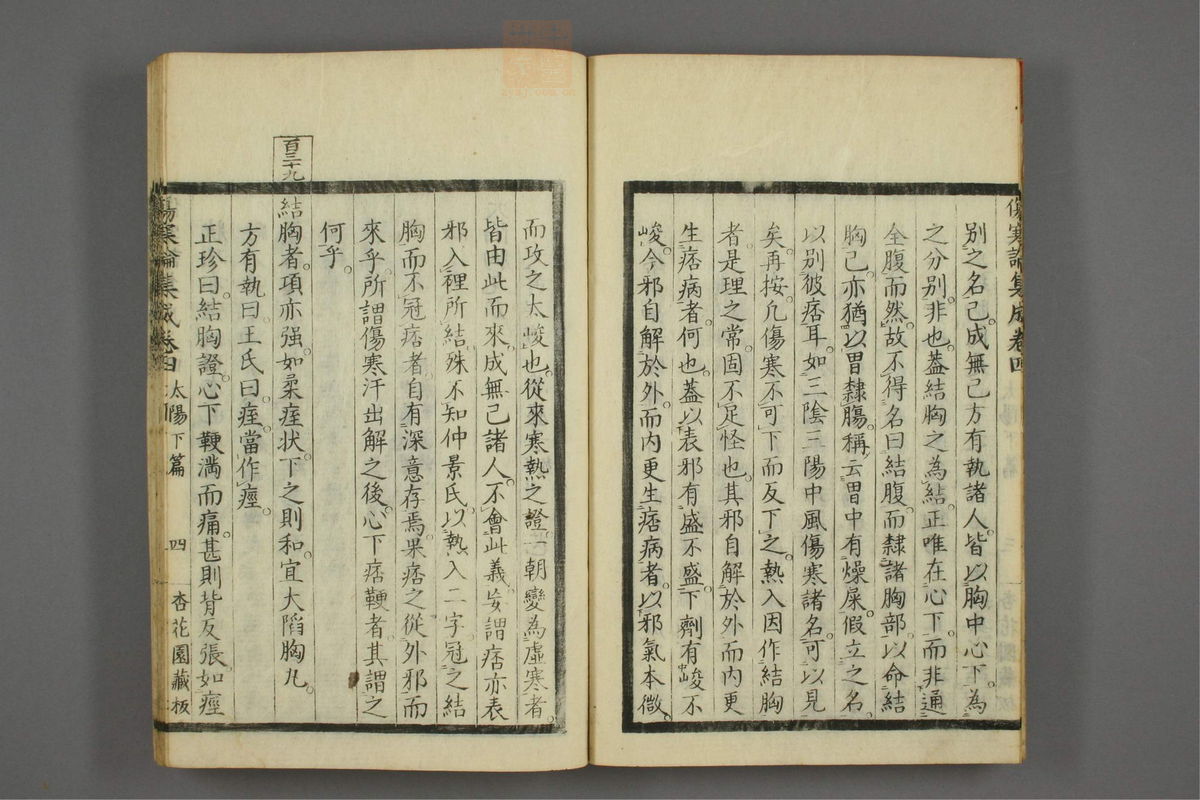 傷寒論集成卷四
別之名已。成無已方有執諸人。皆以胸中心下。為
之分別。非也。蓋結胸之為結。正唯在心下。而非通
全腹而然。故不得名曰結腹。而隸諸胸部。以命結
胸已。亦猶以胃隸膓。稱云胃中有燥屎。假立之名。
以別彼痞耳。如三陰三陽中風傷寒諸名。可以見
矣。再按。凡傷寒不可下而反下之。熱入因作結胸
者。是理之常。固不足怪也。其邪自解於外而內更
生痞病者。何也。蓋以表邪有盛不盛。下劑有峻不
峻。今邪自解於外。而內更生痞病者。以邪氣本微。
而攻之太峻也。從來寒熱之證。一朝變為虛寒者。
皆由此而來。成無已諸人。不會此義。妄謂痞亦表
邪入裡所結。殊不知仲景氏以熱入二字。冠之結
胸。而不冠痞者。自有深意存焉。果痞之從外邪而
來乎。所謂傷寒汗出解之後。心下痞鞕者。其謂之
何乎。
百三十九
結胸者。項亦强。如柔痓狀。下之則和。宜大陷胸丸。
方有執曰。王氏曰。痓。當作痙。
正珍曰。結胸證。心下鞕滿而痛。甚則背反張。如痙
傷寒論集成卷四 太陽下篇 四 杏花園藏板